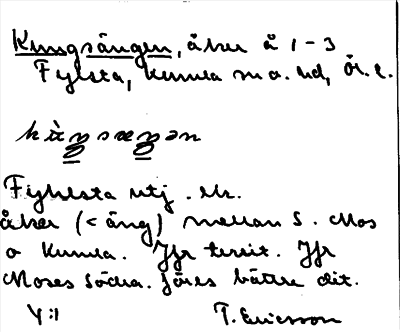 Kungsängen, åker å 1-3
Fylsta, Kumla sn o. hd, Ör. l.
Fylsta utj. är.
åker (< äng) mellan S. Mos
o Kumla. Jfr territ. Jfr
Moses södra. föres bättre dit.
Y:1 T. Ericsson